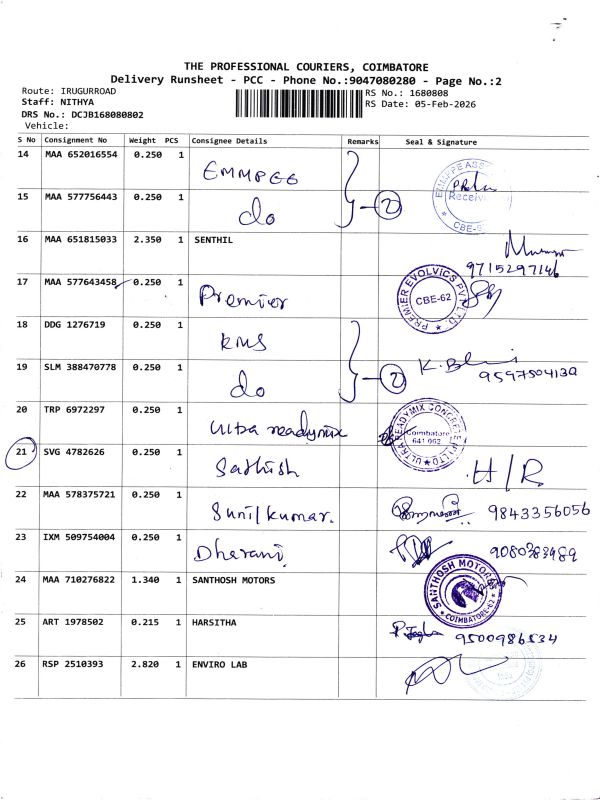 THE PROFESSIONAL COURIERS, COIMBATORE
Delivery Runsheet - PCC - Phone No.:9047080280 - Page No.:2
Route: IRUGURROAD
Staff: NITHYA
DRS No.: DCJB168080802
Vehicle:
RS No.: 1680808
RS Date: 05-Feb-2026
S No Consignment No Weight PCS Consignee Details Remarks Seal & Signature
14 MAA 652016554 0.250 1 EMMPEE
15 MAA 577756443 0.250 1 do 2 Received CBE-6
16 MAA 651815033 2.350 1 SENTHIL 9715297146
17 MAA 577643458 0.250 1 Premier PREMIER EVOLVICS PVT LTD CBE-62
18 DDG 1276719 0.250 1 RMS
19 SLM 388470778 0.250 1 do 2 9597504130
20 TRP 6972297 0.250 1 Ultra readymix ULTRA READYMIX CONCRETE P LTD Coimbatore 641 062
21 SVG 4782626 0.250 1 Sathish H/R.
22 MAA 578375721 0.250 1 Sunil kumar. 9843356056
23 IXM 509754004 0.250 1 Dharani. 9080383989
24 MAA 710276822 1.340 1 SANTHOSH MOTORS SANTHOSH MOTORS COIMBATORE-62
25 ART 1978502 0.215 1 HARSITHA 9500986534
26 RSP 2510393 2.820 1 ENVIRO LAB